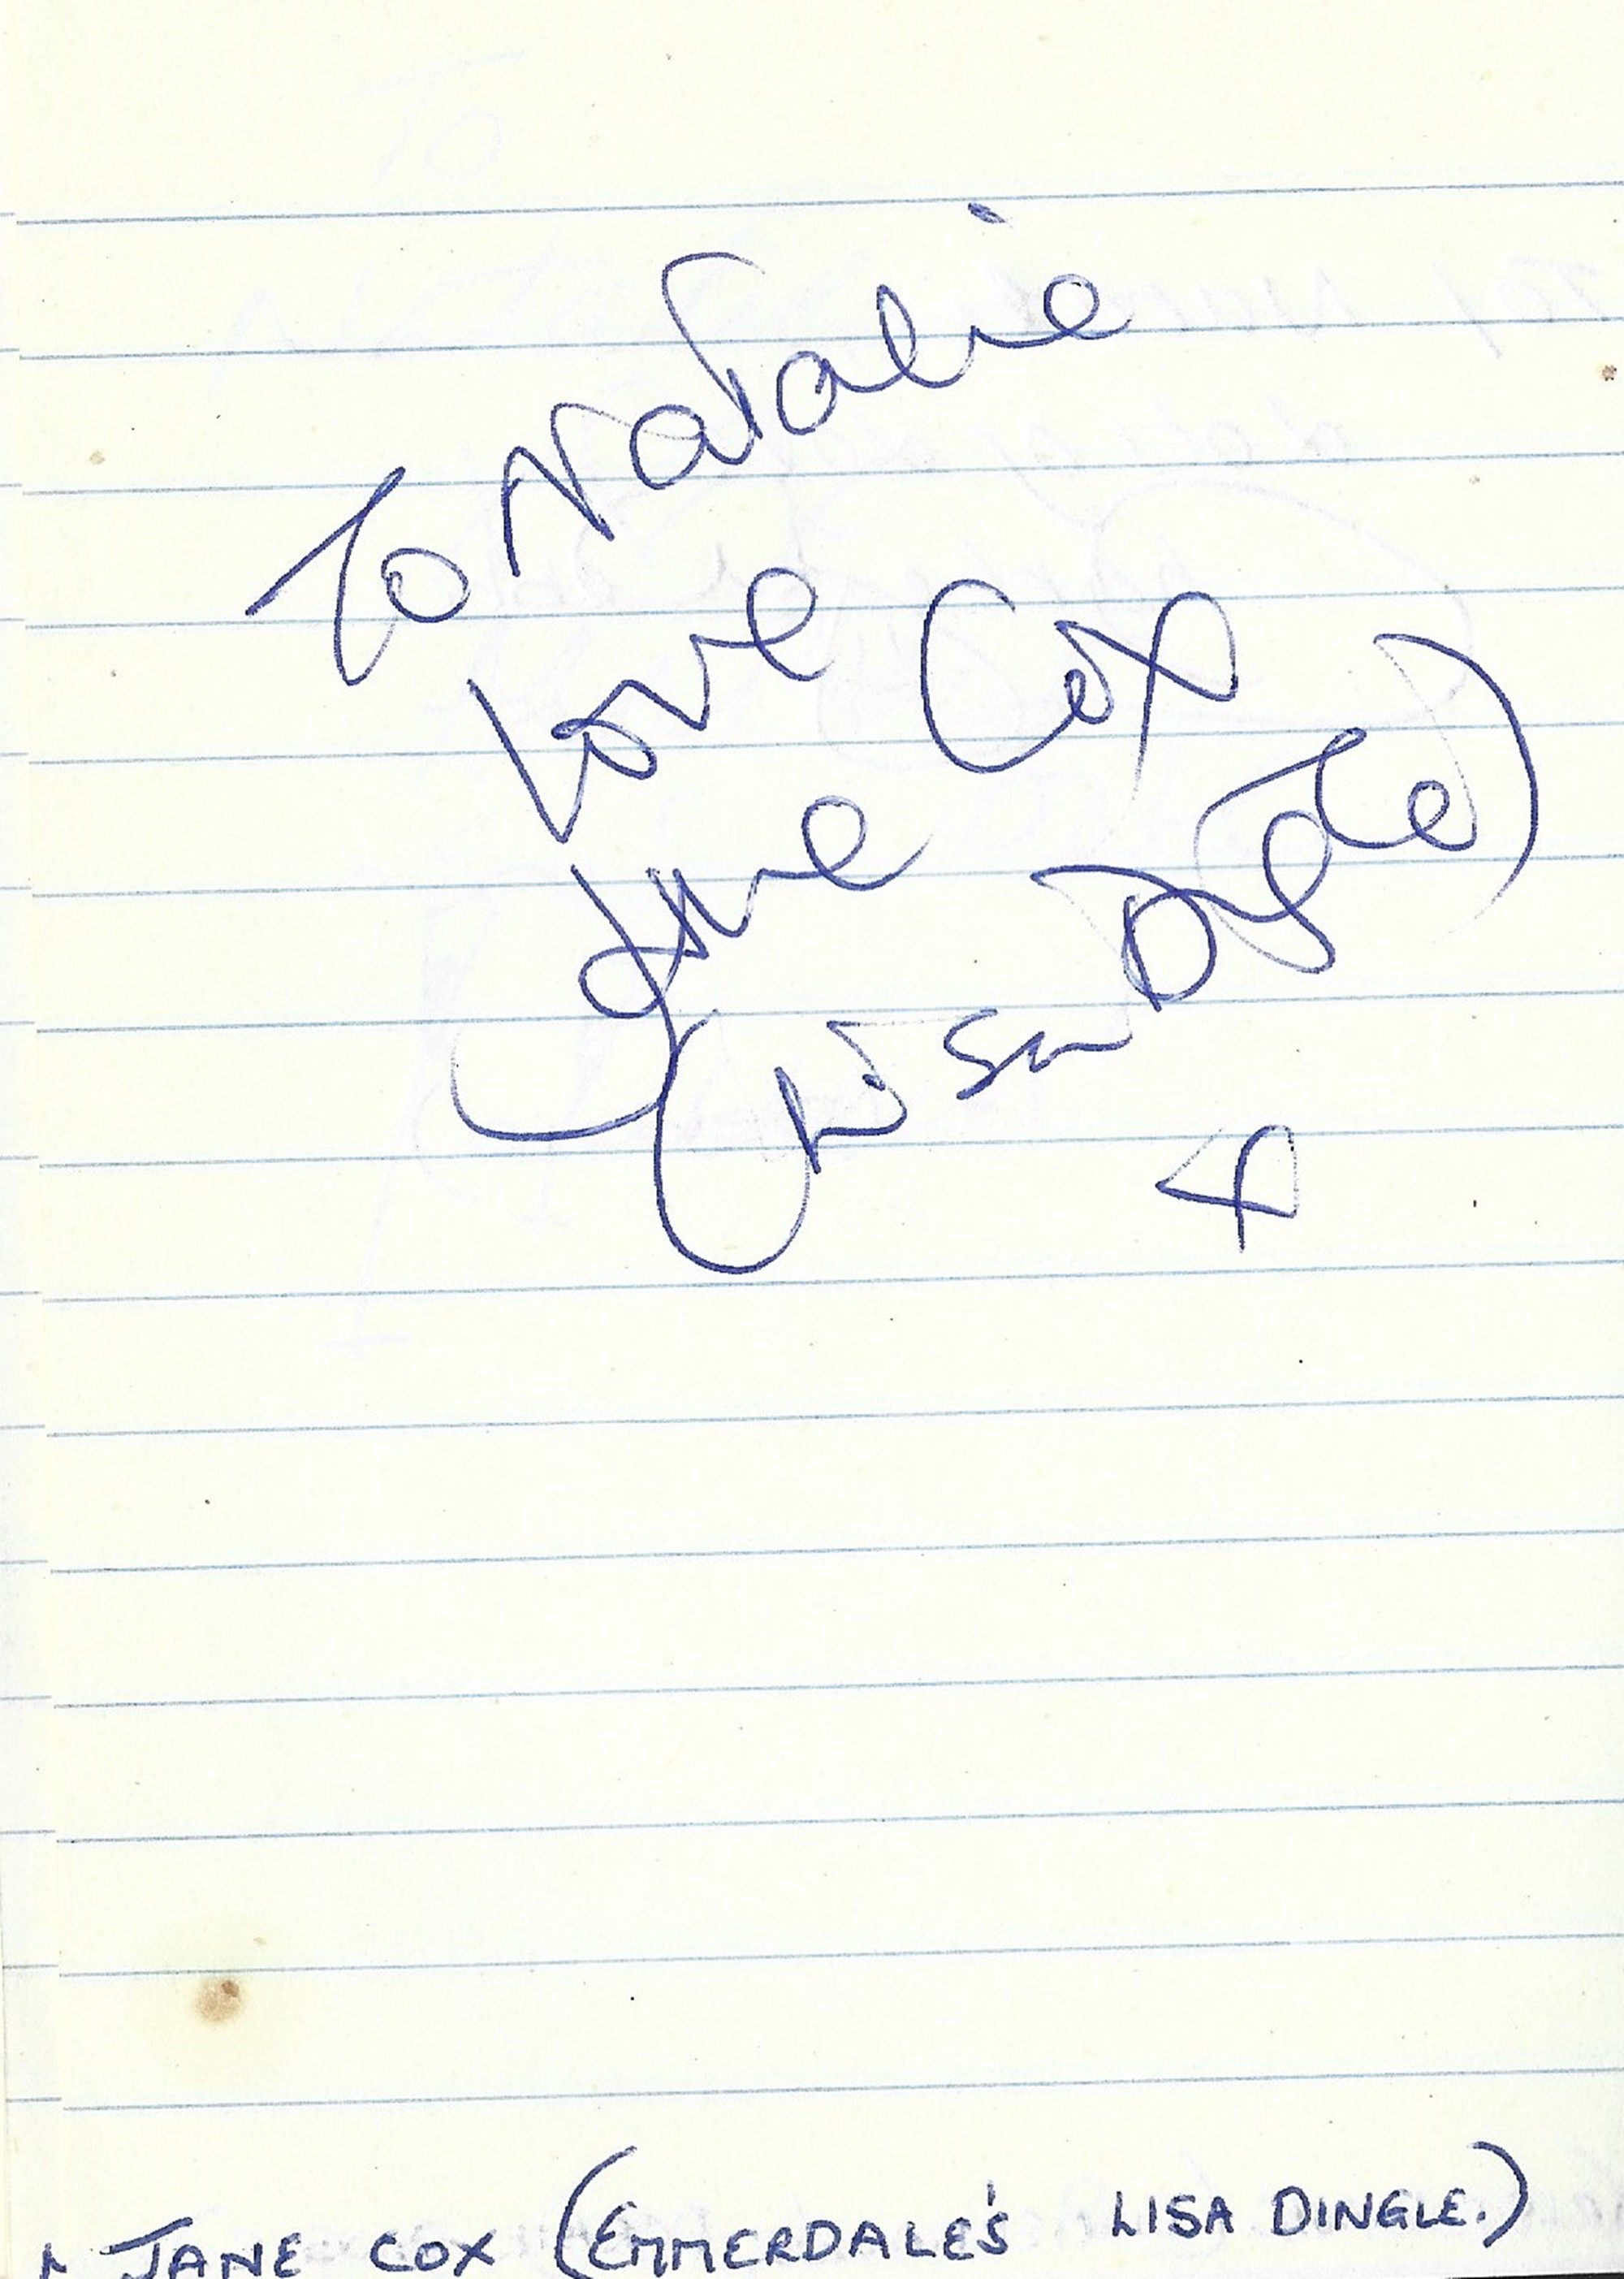 To Natalie
love
Jane Cox
(Lisa Dingle)
JANE COX (EMMERDALE'S LISA DINGLE.)